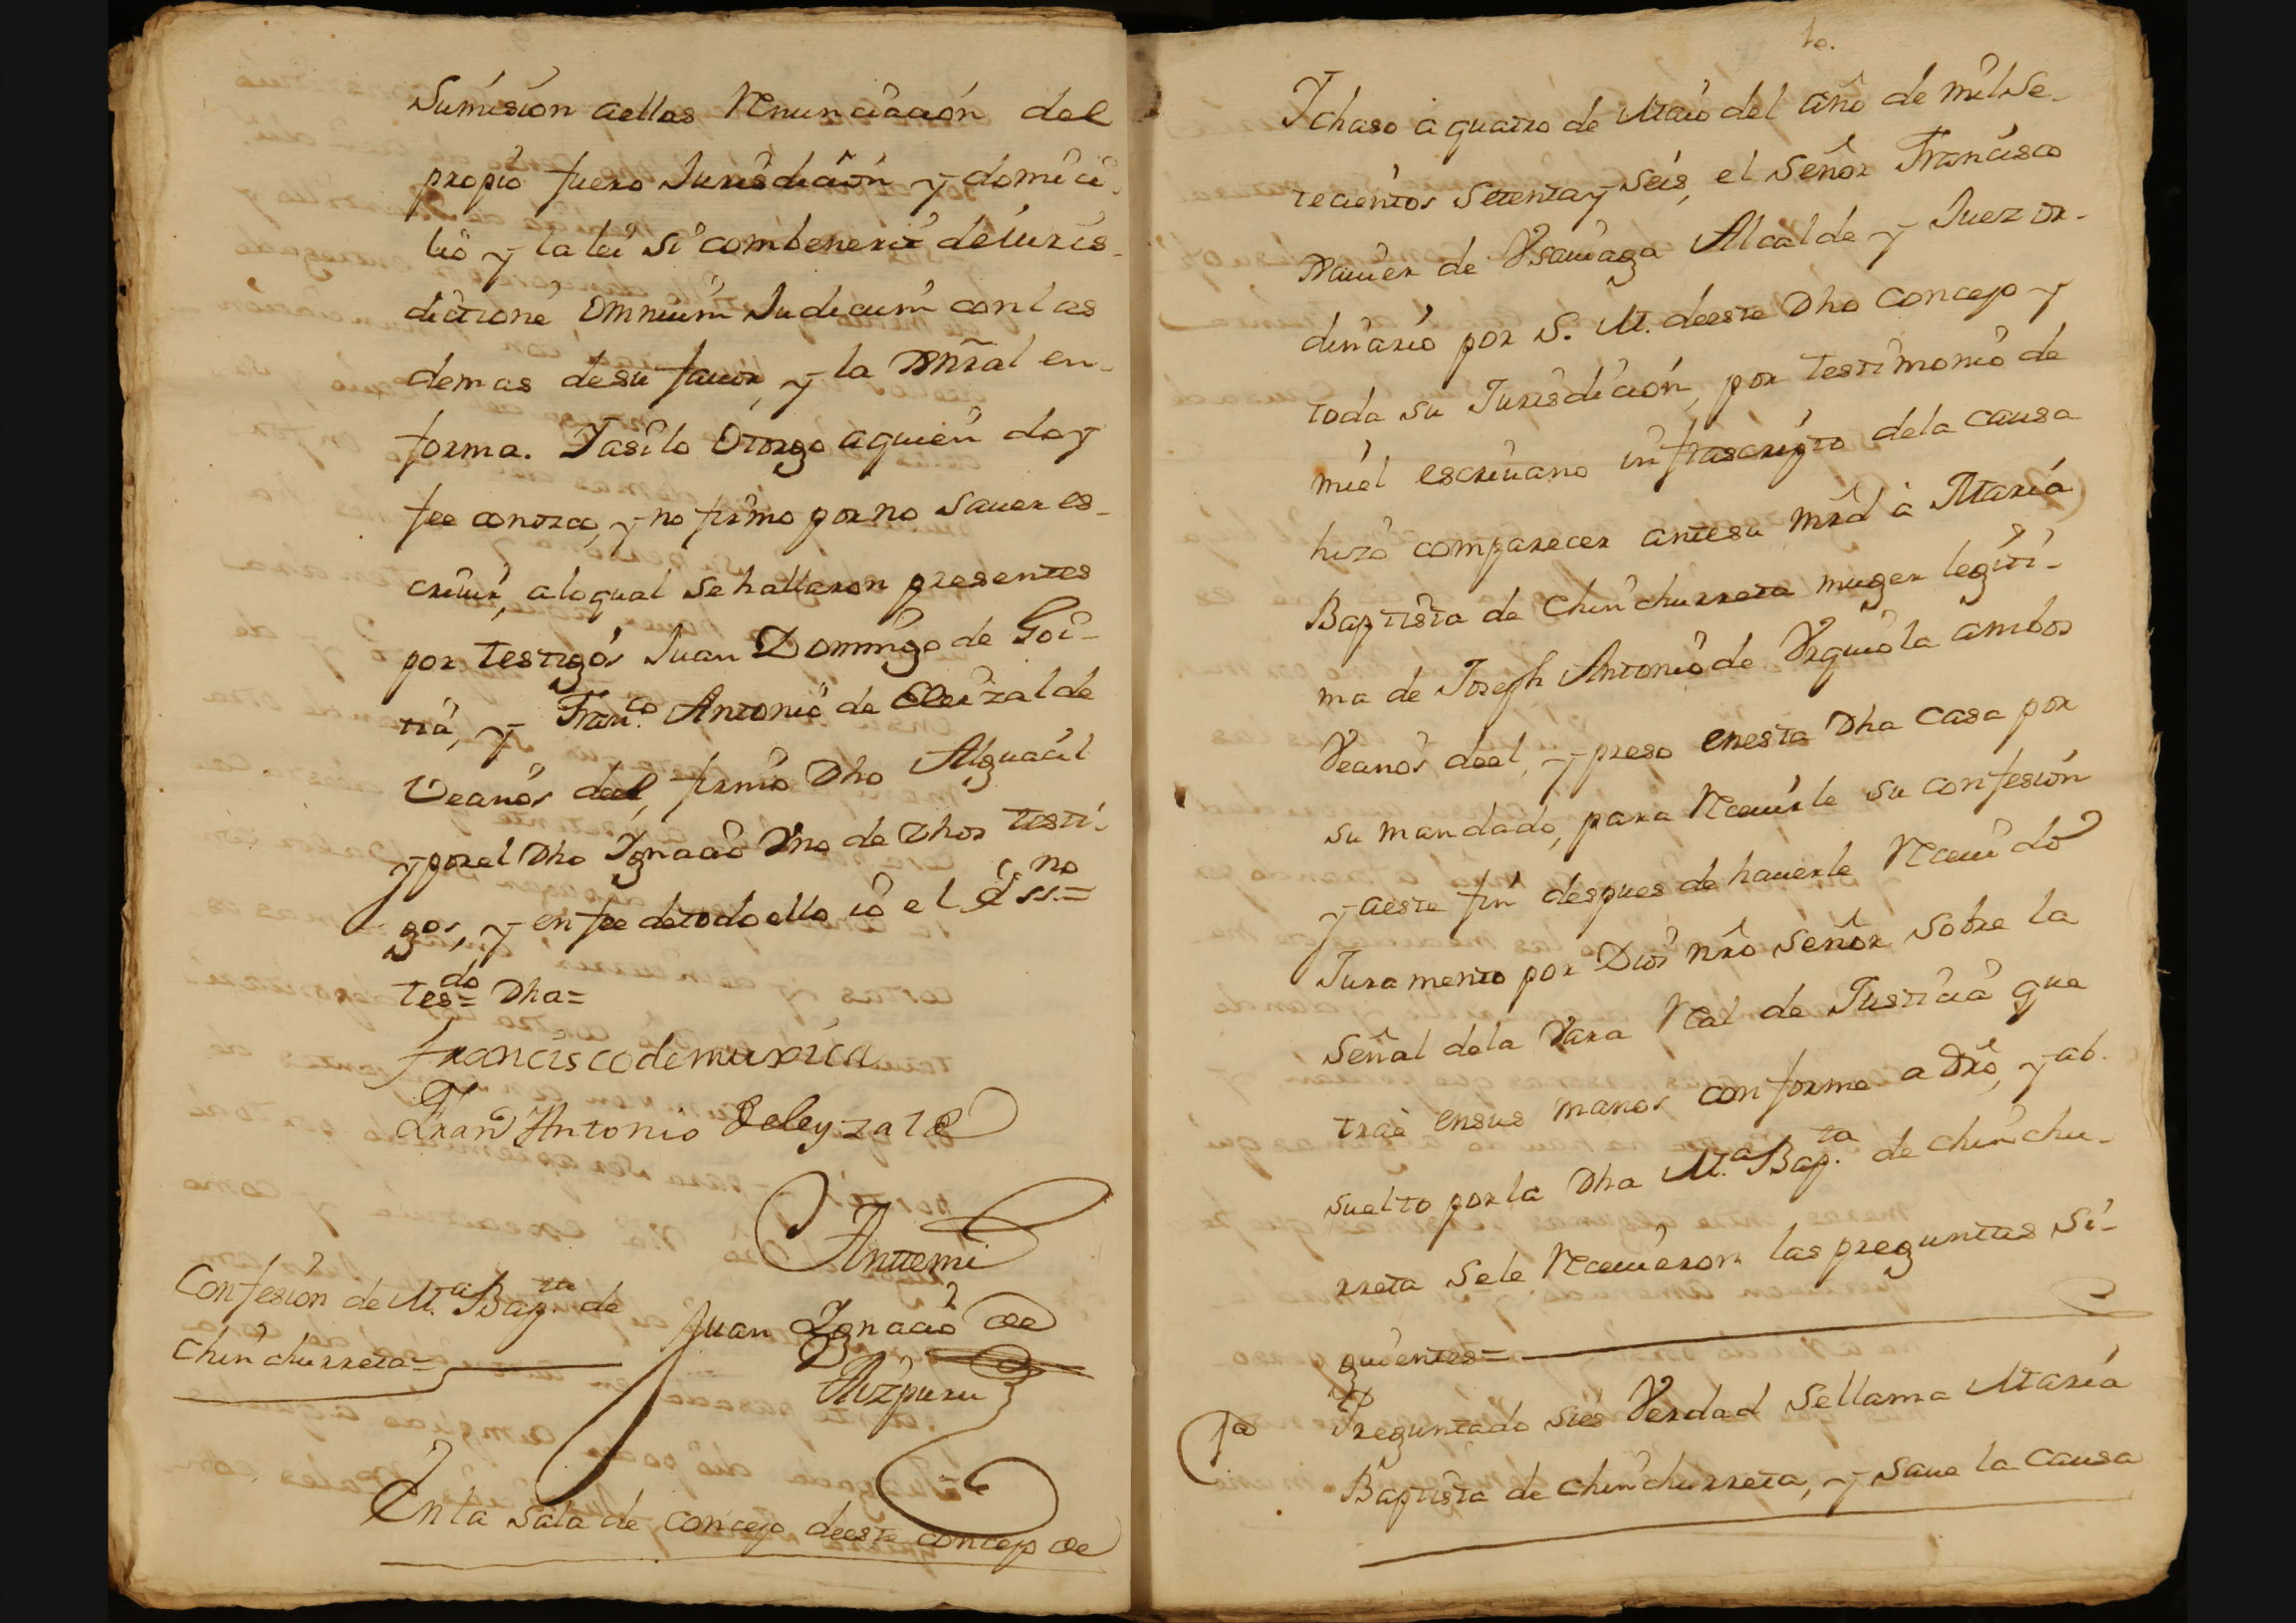 Sumision aellas Renunciacion del
propio fuero Jurisdicion y domici-
lio y la lei si combenerit de iuris-
dictione omnium Judicum con las
demas de su favor, y la Gñral en-
forma. Y asi lo otorgo aquien doy
fee conozco, y no firmo por no saver es-
crivir, alo qual se hallaron presentes
por testigos Juan Domingo de Goi-
tia, y Fran.co Antonio de Eleizalde
Vecinos deel, firmo Dho Alguacil
y por el Dho Ygnacio Vno de dhos testi-
gos, y en fee de todo ello io el Ess.no=
tes.do= Dha=
Francisco de muxica
Fran.co Antonio de leyzalde
Antemi
Juan Ygnacio de
Aizpuru
Confesion de M.a Bap.ta de
Chinchurreta=
En la sala de concejo deeste concejo de
10.
Ychaso a quatro de Maio del año de mil se-
tecientos setenta y seis, el señor Francisco
Xavier de Ysauiaga Alcalde y Juez or-
dinario por S. M. deeste Dho concejo y
toda su Jurisdicion, por testimonio de
miel escrivano infrascripto dela causa
hizo comparecer antesu mrd à Maria
Baptista de Chinchurreta muger legiti-
ma de Joseph Antonio de Vrquiola ambos
Vecinos deel, y preso enesta Dha casa por
su mandado, para Recivirle su confesion
y aeste fin despues de haverle Recivido
Juramento por Dios nrô señor sobre la
señal dela Vara Real de Justicia que
traè ensus manos conforme a Drô, y ab-
suelto por la Dha M.a Bap.ta de Chinchu-
rreta sele Recivieron las preguntas si-
guientes=
1a Preguntado sies Verdad sellama Maria
Baptista de Chinchurreta, y save la causa